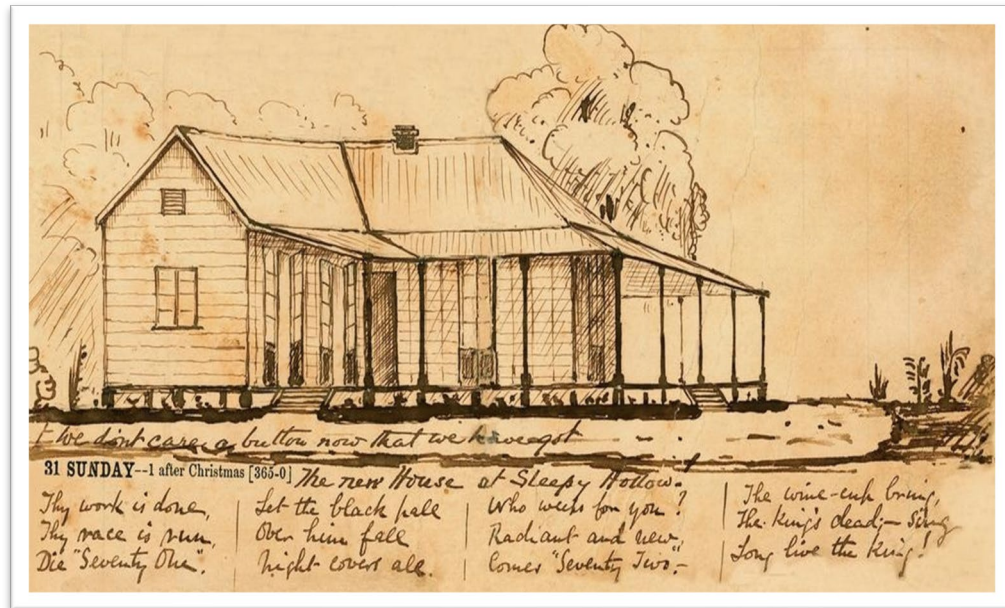 & We don't care a button now that we have got
31 SUNDAY--1 after Christmas [365-0]
The new House at Sleepy Hollow.
Thy work is done,
Thy race is run,
Die "Seventy One".
Let the black pall
Over him fall
Night covers all.
Who weeps for you?
Radiant and new,
Comes "Seventy Two".-
The wine-cup bring,
The King's dead;- Sing
Long live the King!